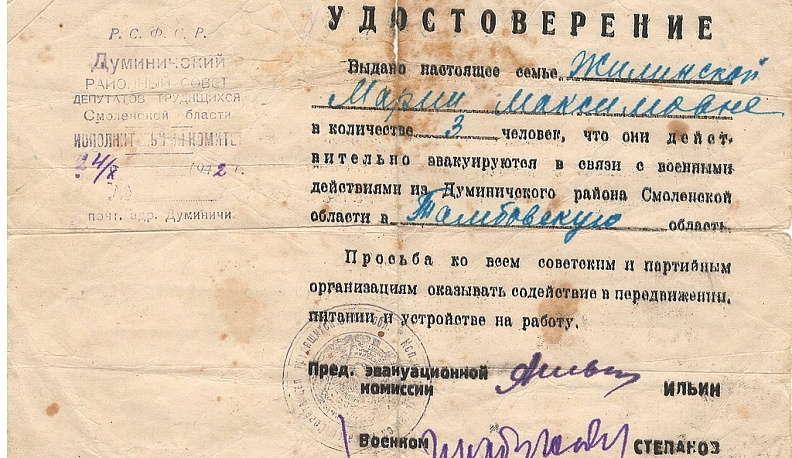 Р. С. Ф. С. Р.
Думиничский
РАЙОННЫЙ СОВЕТ
ДЕПУТАТОВ ТРУДЯЩИХСЯ
Смоленской области
24/8 1942 г.
№
почт. адр. Думиничи
УДОСТОВЕРЕНИЕ
Выдано настоящее семье Жилинской
Марии Максимовне
в количестве 3 человек, что они дейст-
вительно эвакуируются в связи с военными
действиями из Думиничского района Смоленской
области в Тамбовскую область.
Просьба ко всем советским и партийным
организациям оказывать содействие в передвижении,
питании и устройстве на работу.
Пред. эвакуационной
комиссии ИЛЬИН
Военком СТЕПАНОВ